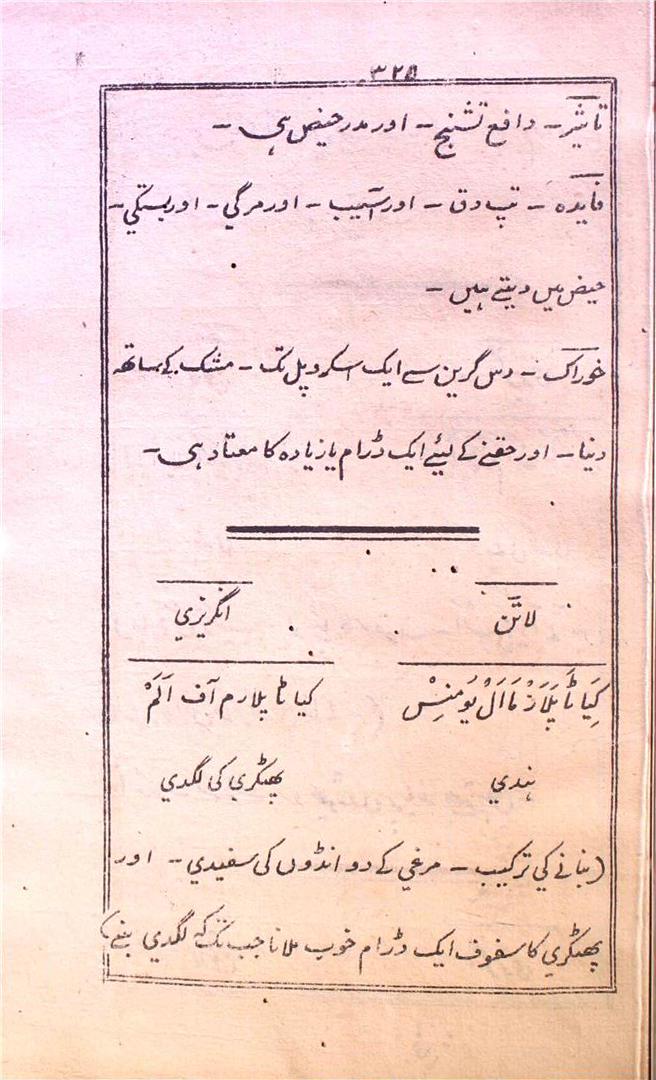 ۳۲۵
تاثیر ۔ دافع تشنج ۔ اور مدر حیض ہی ۔
فایدہ ۔ تپ دق ۔ اور آسیب ۔ اور مرگي ۔ اور بستگي ۔
حیض میں دیتے ہیں ۔
خوراک ۔ دس گرین سے ایک اسکروپل تک ۔ مشک کے ساتھ
دینا ۔ اور حقنے کے لیئے ایک ڈرام یا زیادہ کا معتاد ہی ۔
لاتن انگریزي
کِیَاٹَاپْلَازْمَااَلْ یُومِنِسْ کیاٹاپلازم آف اَلَمْ
ہندي پھٹکري کی لگدي
(بنانے کي ترکیب ۔ مرغي کے دو انڈوں کی سفیدي ۔ اور
پھٹکري کا سفوف ایک ڈرام خوب ملانا جب تک کہ لگدي بنے)